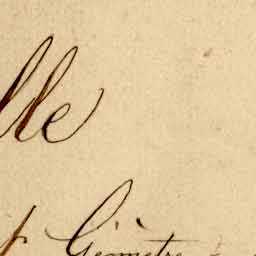 lle
Géomètre